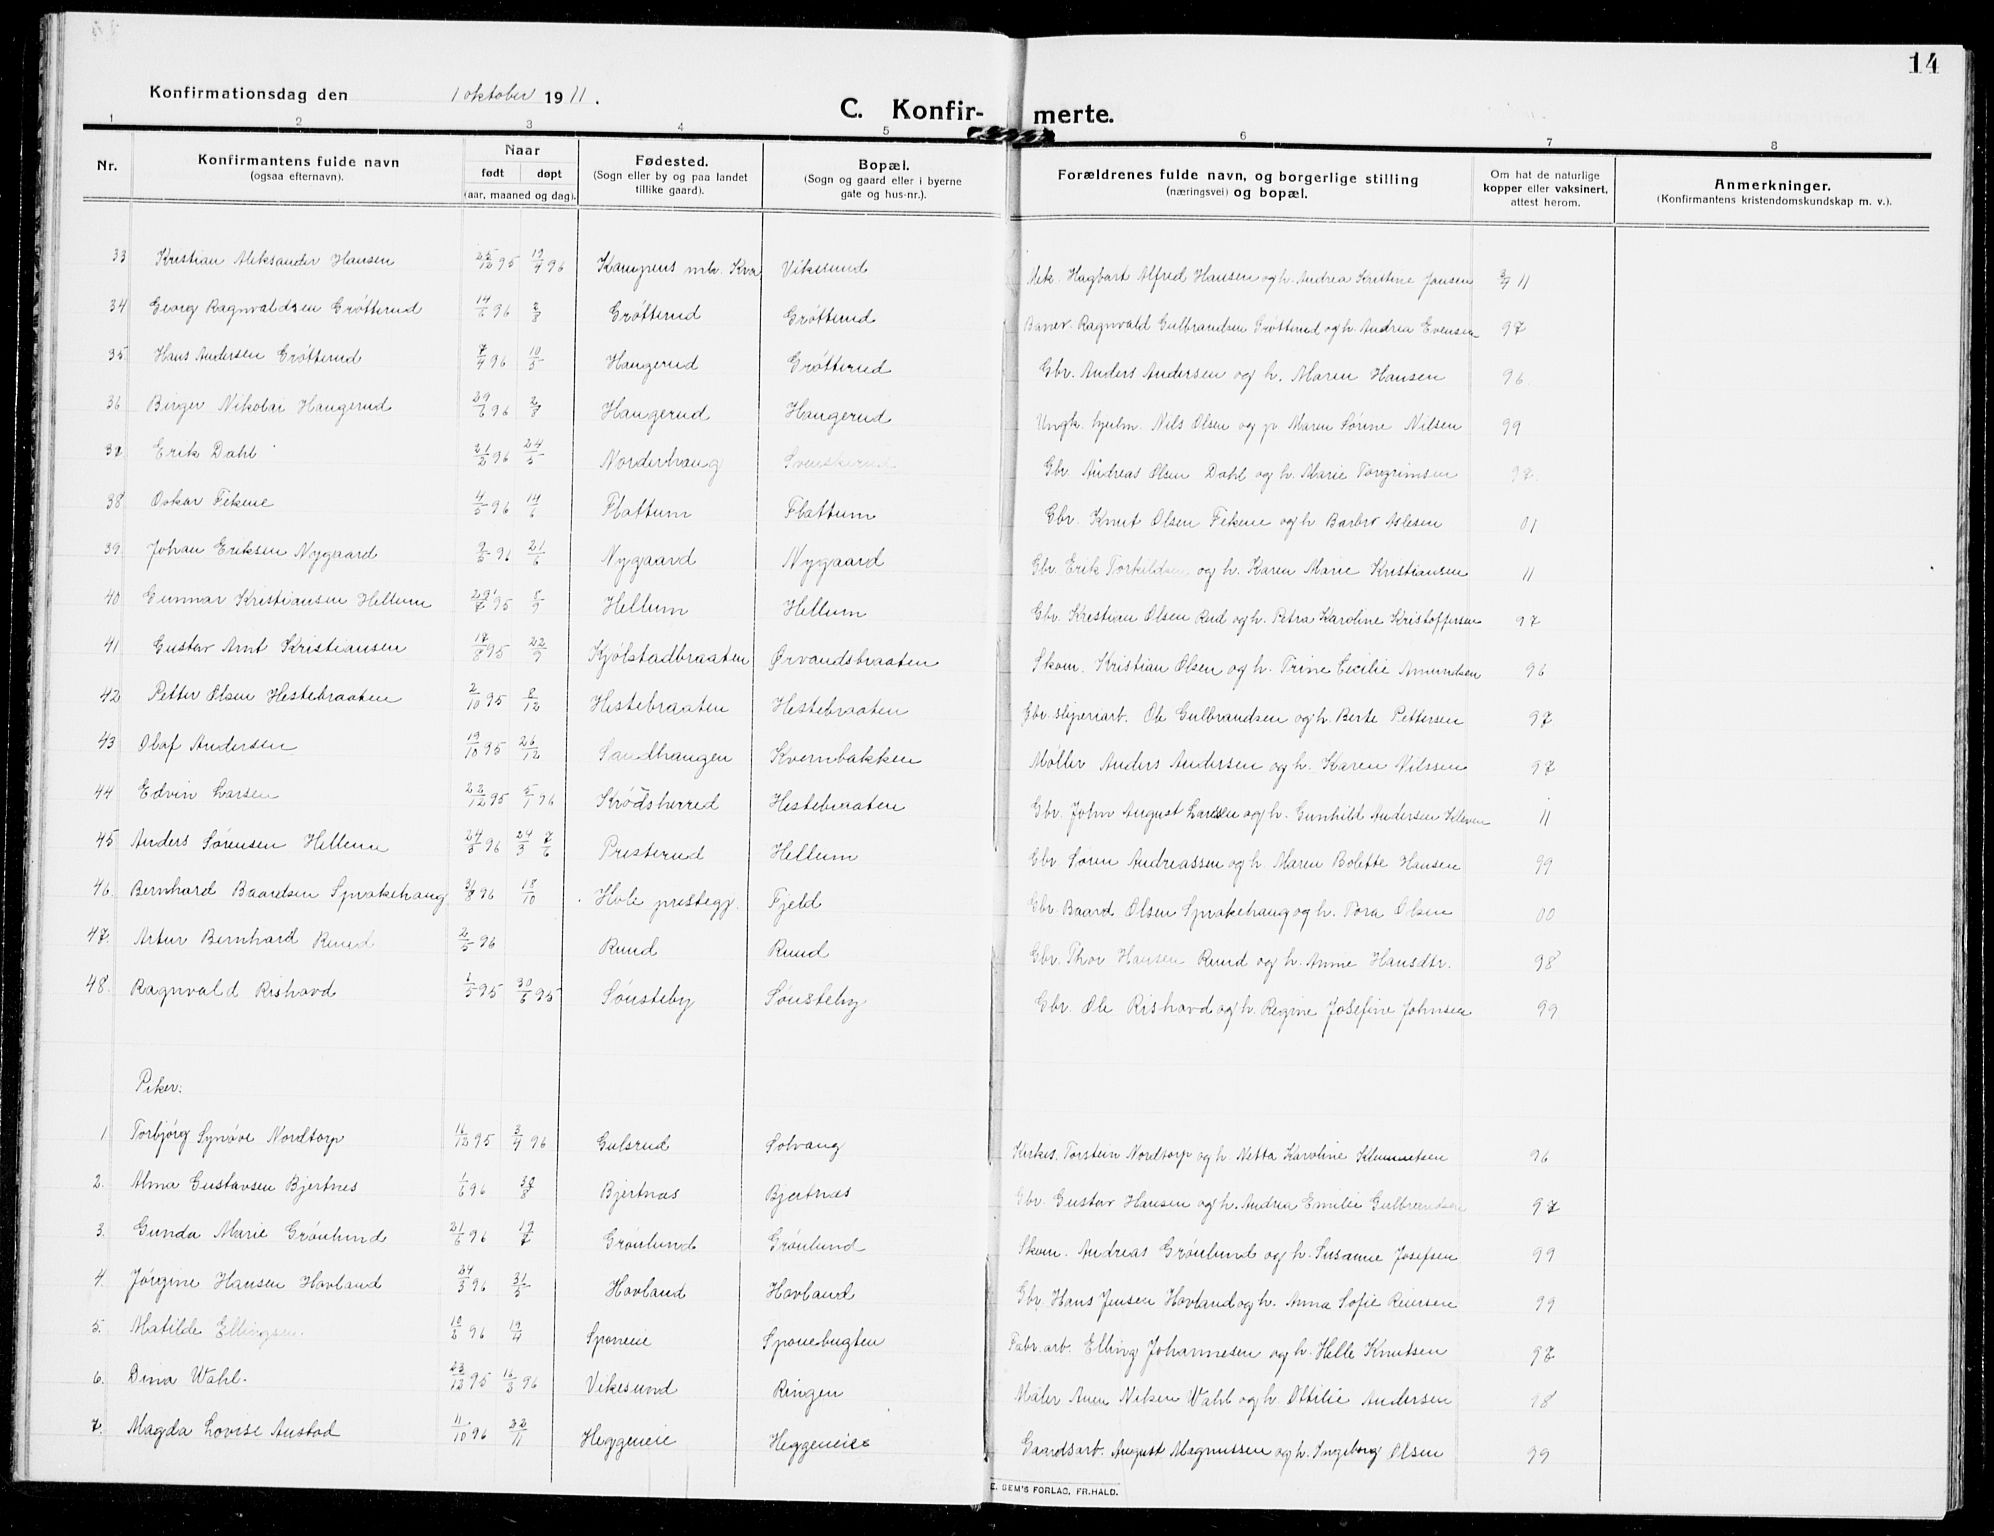 14
Konfirmationsdag den 1 oktober 1911.
C. Konfir- merte.
1 2 3 4 5 6 7 8
Nr. Konfirmantens fulde navn (ogsaa efternavn). Naar født døpt (aar, maaned og dag). Fødested. (Sogn eller by og paa landet tillike gaard). Bopæl. (Sogn og gaard eller i byerne gate og hus-nr.). Forældrenes fulde navn, og borgerlige stilling (næringsvei) og bopæl. Om hat de naturlige kopper eller vaksinert, attest herom. Anmerkninger. (Konfirmantens kristendomskundskap m. v.).
33 Kristian Aleksander Hansen 25/12 95 19/4 96 Kampens mh. Kra Vikesund Hagbart Alfred Hansen og h. Andrea Kristine Jansen 11
34 Georg Ragnvaldsen Grøtterud 14/6 96 2/8 Grøtterud Grøtterud Baner. Ragnvald Gulbrandsen Grøtterud og h. Andrea Evensen 97
35 Hans Andersen Grøtterud 7/4 96 10/5 Haugerud Grøtterud Gbr. Anders Andersen og h. Maren Hansen 96
36 Birger Nikolai Haugerud 29/6 96 2/8 Haugerud Haugerud Ungk. hjulm. Nils Olsen og p. Maren Sørine Nilsen 99
37 Erik Dahl 21/2 96 24/5 Norderhaug Svenskerud Gbr. Andreas Olsen Dahl og h. Marie Torgrimsen 97
38 Oskar Fekene 4/5 96 14/6 Flattum Flattum Gbr. Knut Olsen Fekene og h Barbro Aslesen 01
39 Johan Eriksen Nygaard 9/5 96 21/6 Nygaard Nygaard Gbr. Erik Torkildsen og h. Karen Marie Kristiansen 11
40 Gunnar Kristiansen Hellum 29/7 95 8/9 Hellum Hellum Gbr. Kristian Olsen Rud og h. Petra Karoline Kristoffersen 97
41 Gustav Arnt Kristiansen 17/8 95 22/9 Kjølstadbraaten Ørvandsbraaten Skom. Kristian Olsen og h. Trine Cecilie Amundsen 96
42 Petter Olsen Hestebraaten 2/10 95 8/12 Hestebraaten Hestebraaten Gbr. sliperiarb. Ole Gulbrandsen og h. Berte Pettersen 97
43 Olaf Andersen 19/10 95 26/12 Sandhaugen Kvernbakken Møller Anders Andersen og h. Karen Nilssen 97
44 Edvin Larsen 22/12 95 5/1 96 Krødsherred Hestebraaten Gbr. John August Larsen og h. Gunhild Andersen Kleven 11
45 Anders Sørensen Hellum 24/3 96 24/3 7/6 Presterud Hellum Gbr Søren Andreassen og h. Maren Bolette Hansen 99
46. Bernhard Baardsen Sprakehaug 31/8 96 18/10 Hole prestegj. Fjeld Gbr Baard Olsen Sprakehaug og h. Tora Olsen 00
47. Artur Bernhard Ruud 2/5 96 Ruud Ruud Gbr. Thor Hansen Ruud og h. Anne Hansdtr. 98
48. Ragnvald Rishovd 1/5 95 30/6 95 Sønsteby Sønsteby Gbr. Ole Rishovd og h. Regine Josefine Johnsen 99
Piker.
1 Torbjørg Synøve Nordtorp 16/12 95 3/4 96 Gulsrud Solvang Kirkes. Torstein Nordtorp og h Netta Karoline Klemmetsen 96
2. Alma Gustavsen Bjertnes 1/6 96 30/8 Bjertnæs Bjertnæs Gbr. Gustav Hansen og h. Andrea Emilie Gulbrandsen 97
3. Gunda Marie Grønlund 21/6 96 19/7 Grønlund Grønlund Skom. Andreas Grønlund og h. Susanne Josefsen 99
4. Jørgine Hansen Hovland 24/3 96 31/5 Hovland Hovland Gbr Hans Jensen Hovland og h. Anna Sofie Reiersen 99
5. Matilde Ellingsen 10/2 96 19/4 Sponeie Sponebugten Fabr.arb. Elling Johannesen og h. Helle Knutsen 97
6. Dina Wahl. 23/12 95 16/3 96 Vikesund Ringen Maler Nilsen Wahl og h Ottilie Andersen 98
7. Magda Lovise Austad 11/10 96 22/11 Heggeneie Heggeneie Gaardsarb. August Magnussen og h. Ingeborg Olsen 99
E. SEM'S FORLAG, FR.HALD.